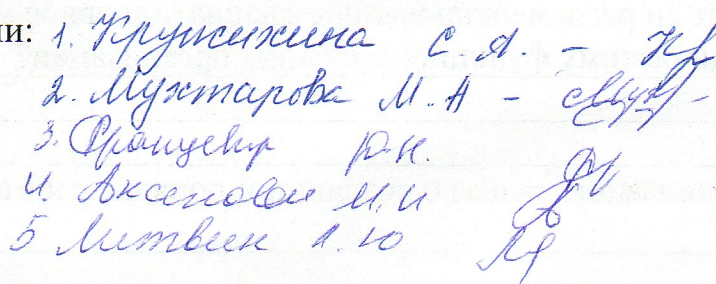 ии: 1. Кружихина С.А. –
2. Мухтарова М.А –
3. Францевич Ю.Н.
4. Аксенова М.И
5 Литвин А.Ю